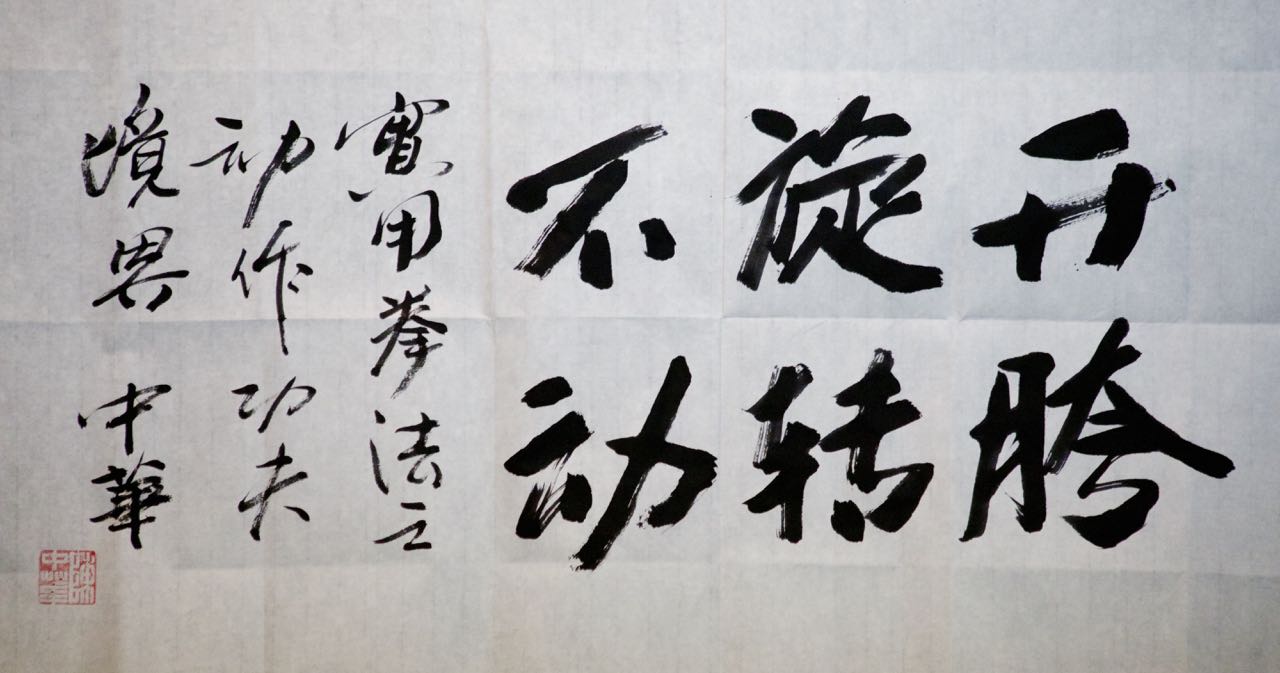 开胯
旋转
不动
實用拳法之
动作功夫
境界 中華